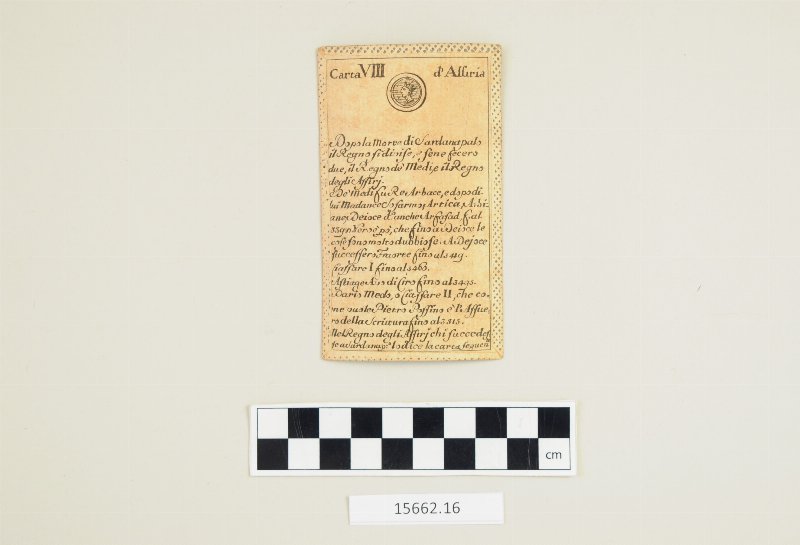 Carta VIII d'Assiria
Dopo la Morte di Sardanapalo
il Regno si divise, e sene fecero
due, il Regno de Medi, e il Regno
degli Assirj.
De Medi fu Re Arbace, e dopo di
lui Madauce Sosarmo, Artica, Arbi
ane, Deioce
che fino a Deioce le
cose sono molto dubbiose. A Dejoce
successero fino al 3419.
Ciassare I fino al 3463.
Astiage Avo di Ciro fino al 3495.
Dario Medo, o Ciassare II, che co-
me vuole Pietro Possino è l'Assue
ro della Scrittura fino al 3515.
Nel Regno degli Assirj chi succedes
se a lo dice la carta seguen
cm
15662.16